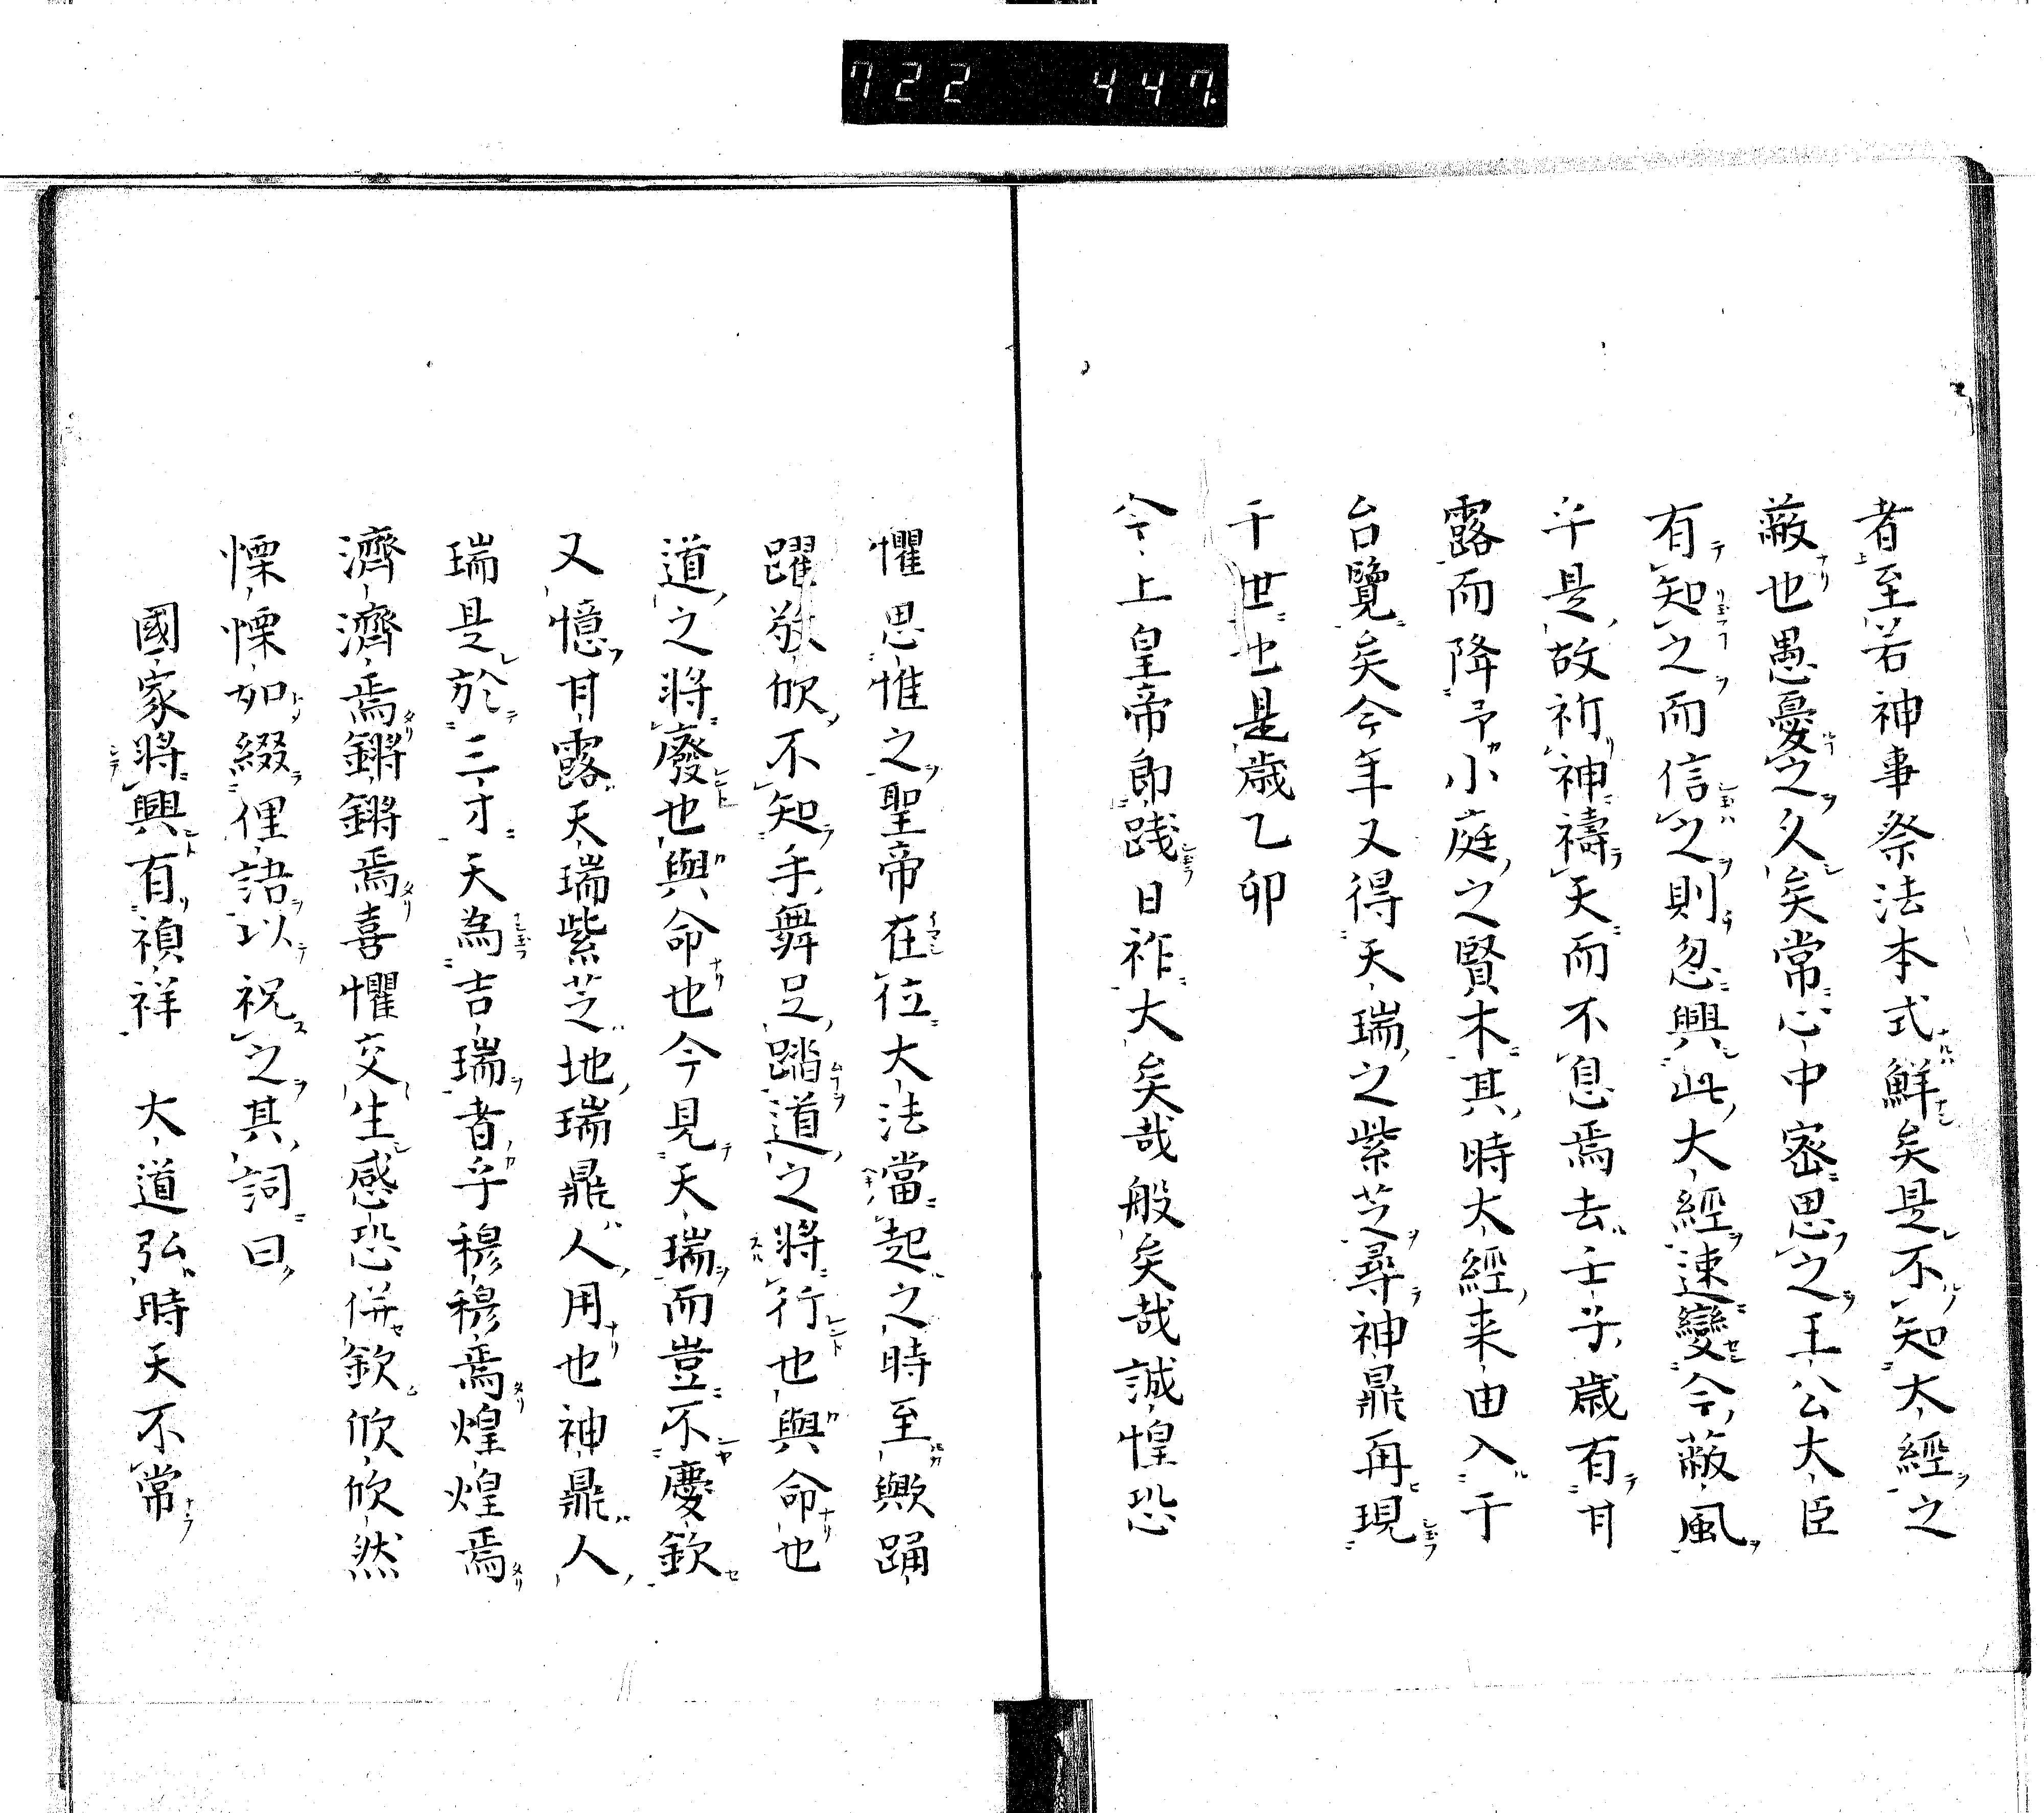 722 447.
者至若神事祭法本式鮮矣是不知大經之
蔽也愚憂之久矣常心中密思之王公大臣
有知之而信之則忽興此大經速變今蔽風
乎是故祈神禱天而不息焉去壬子歳有甘
露而降予小庭之賢木其時大經来由入于
台覽矣今年又得天瑞之紫芝尋神鼎再現
于世也是歳乙卯
今上皇帝即踐日祚大矣哉般矣哉誠惶恐
懼思惟之聖帝在位大法當起之時至歟踊
躍敬欣不知手舞足踏道之將行也與命也
道之將廢也與命也今見天瑞而豈不慶欽
又憶甘露天瑞紫芝地瑞鼎人用也神鼎人
瑞是於三才天為吉瑞者乎穆穆焉煌煌焉
濟濟焉鏘鏘焉喜懼交生感恐併欽欣欣然
慄慄如綴俚語以祝之其詞曰
國家將興有禎祥　大道弘時天不常